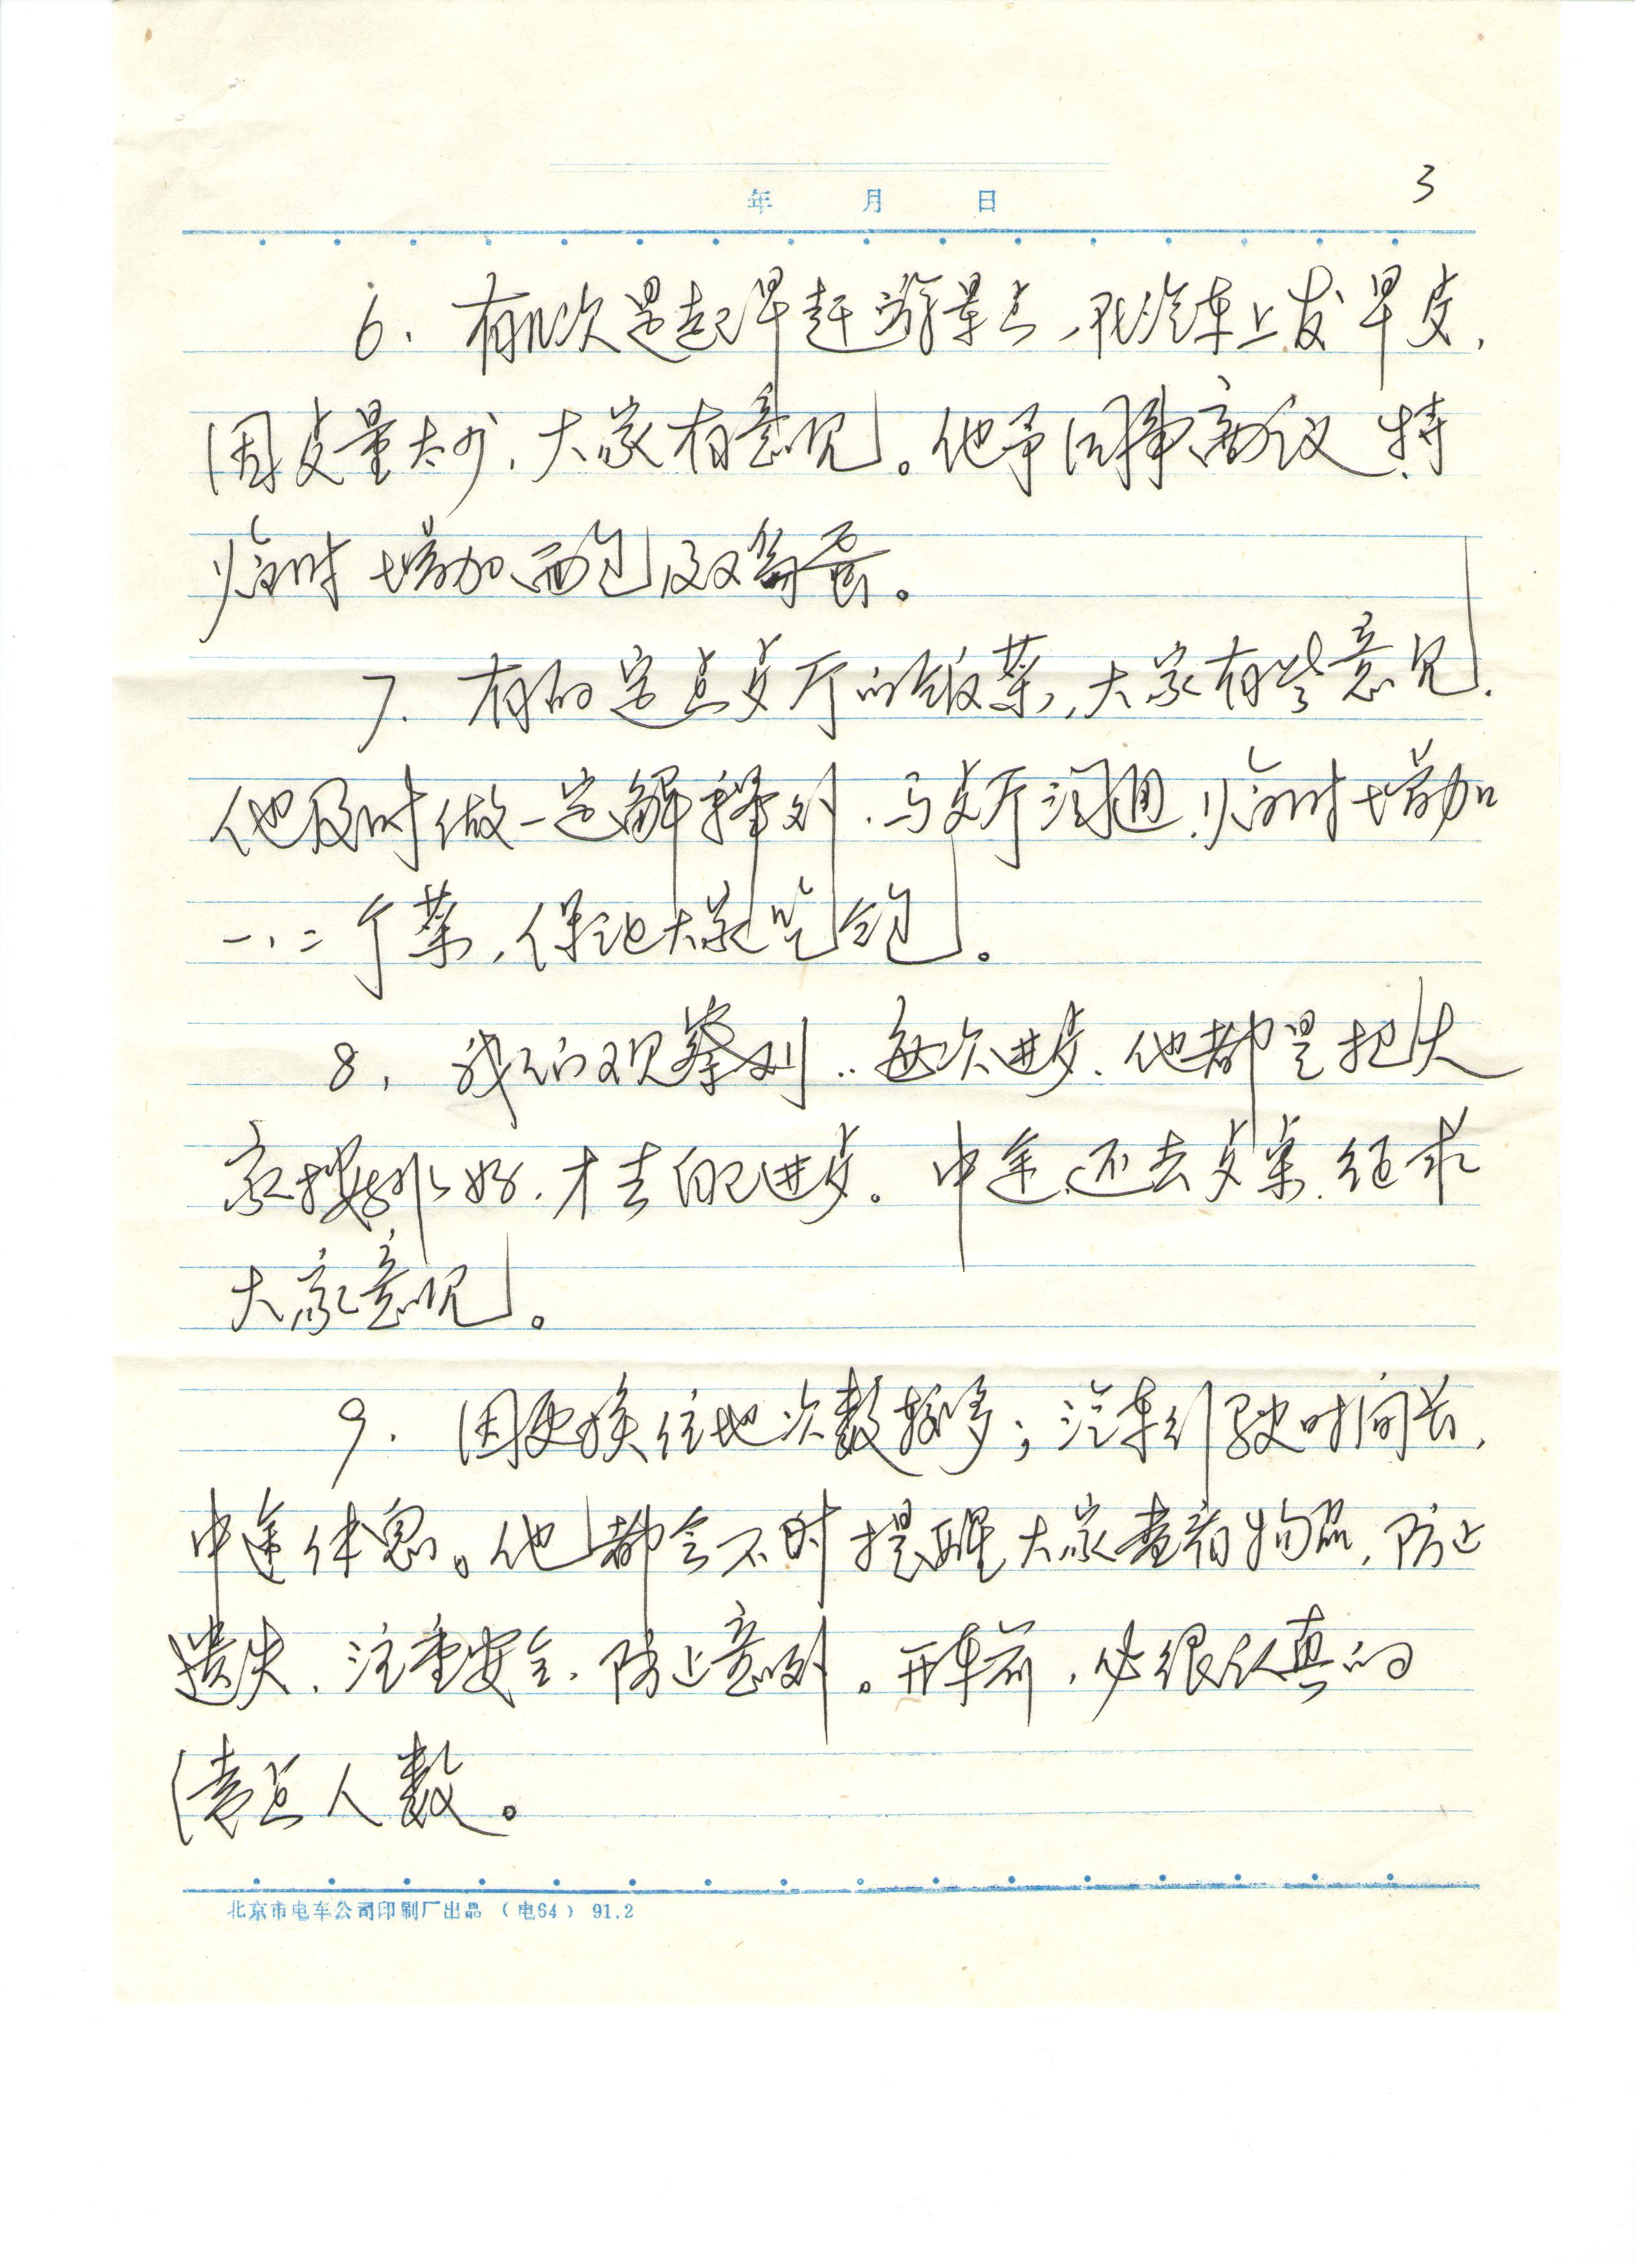 年 月 日
3
6. 有几次是起早赶游景点,在汽车上发早歺,
因歺量太少,大家有意见。他予同事商议,特
临时增加面包及鸡蛋。
7. 有的定点歺厅的饭菜,大家有些意见.
他及时做一定解释外.与歺厅沟通.临时增加
一、二个菜,保证大家吃饱。
8. 我们观察到..每次进歺.他都是把大
家按排好.才去自己进歺。中途还去歺桌.征求
大家意见。
9. 因更换住地次数较多;汽车行驶时间长,
中途休息。他都会不时提醒大家查看物品,防止
遗失.注重安全.防止意外。开车前,必很认真的
清点人数。
北京市电车公司印刷厂出品(电64)91.2